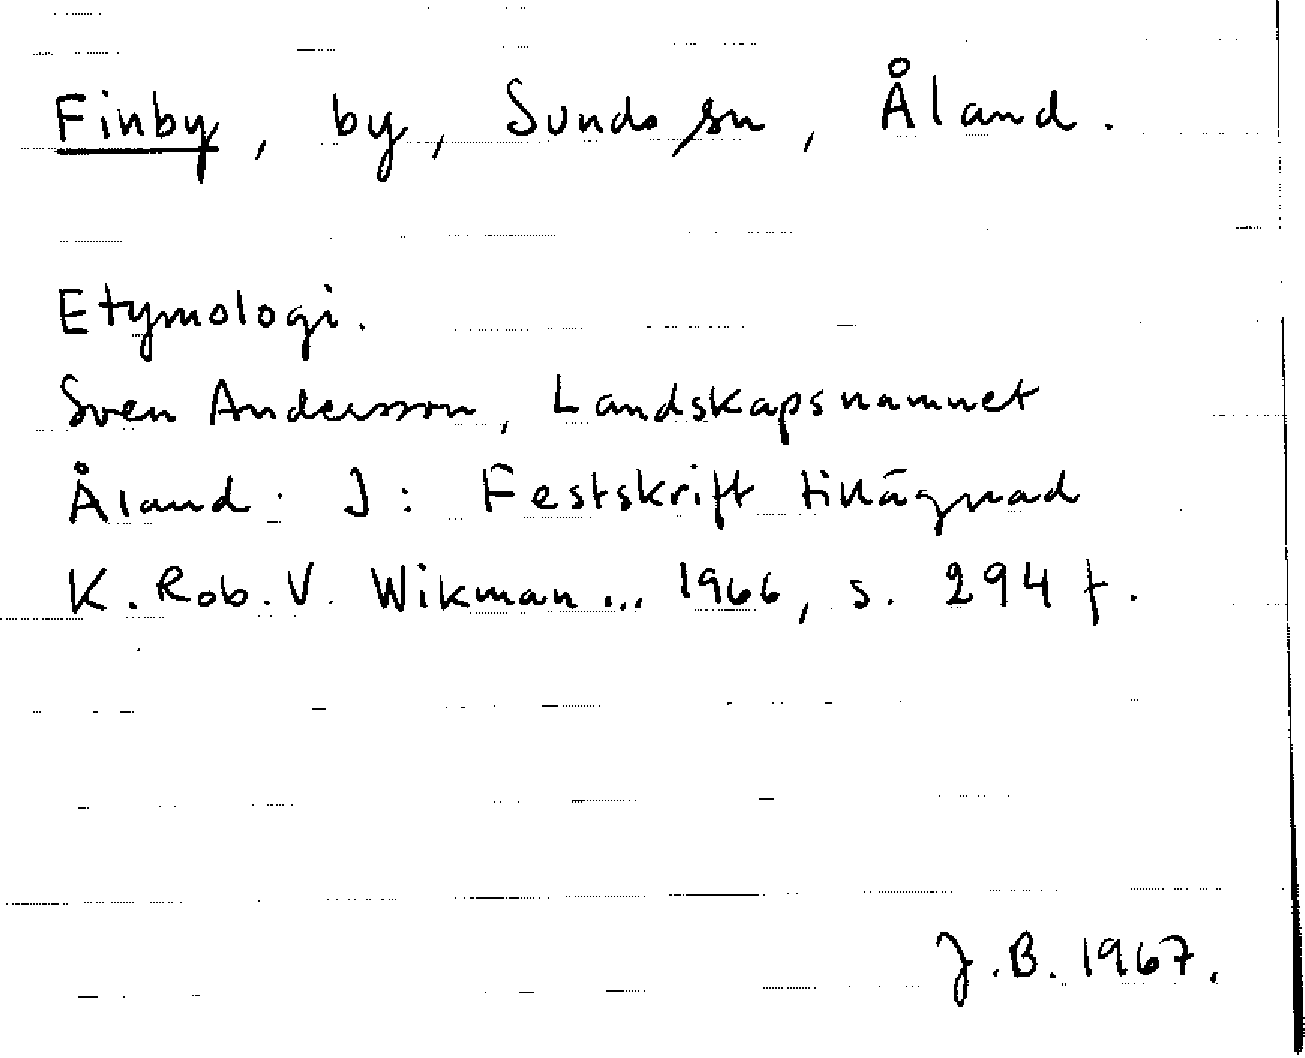 Finby, by, Sunds sn, Åland.
Etymologi.
Sven Andersson, Landskapsnamnet
Åland. I: Festskrift tillägnad
K. Rob. V. Wikman ... 1966, s. 294 f.
J.B. 1967.